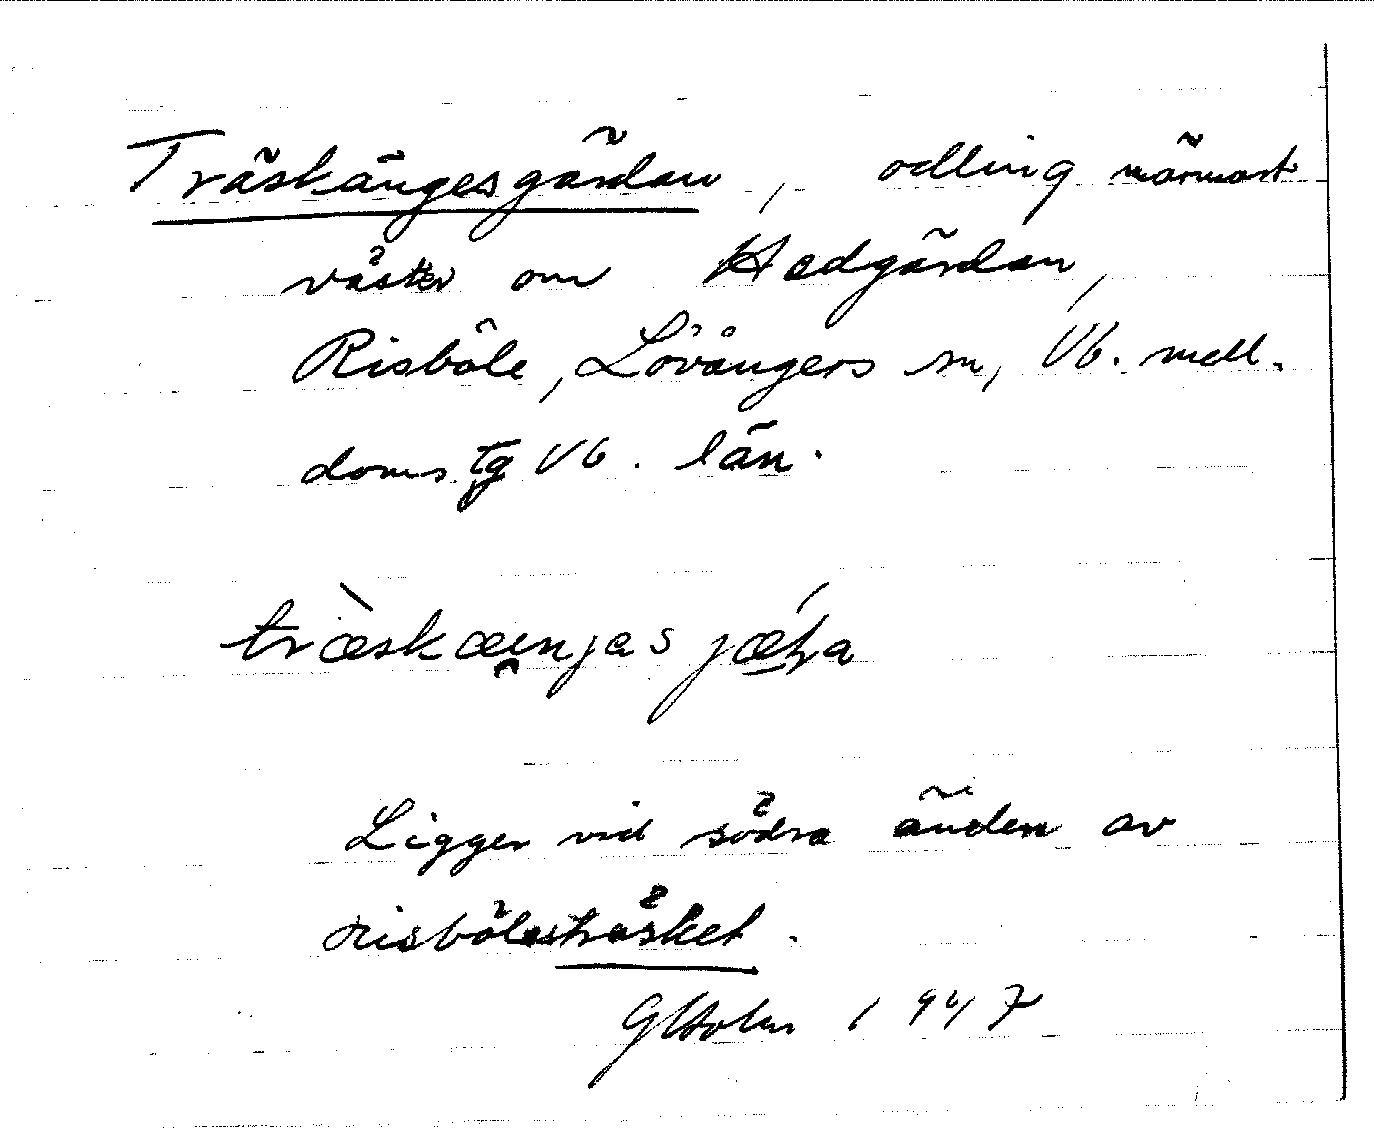 Träskängesgärdan, odling närmast
väster om Hedgärdan,
Risböle, Lövångers sn, Vb. mell.
doms.tg Vb. län.
træskæinjas jæła
Ligger vid södra änden av
risbölesträsket.
G Holm 1947